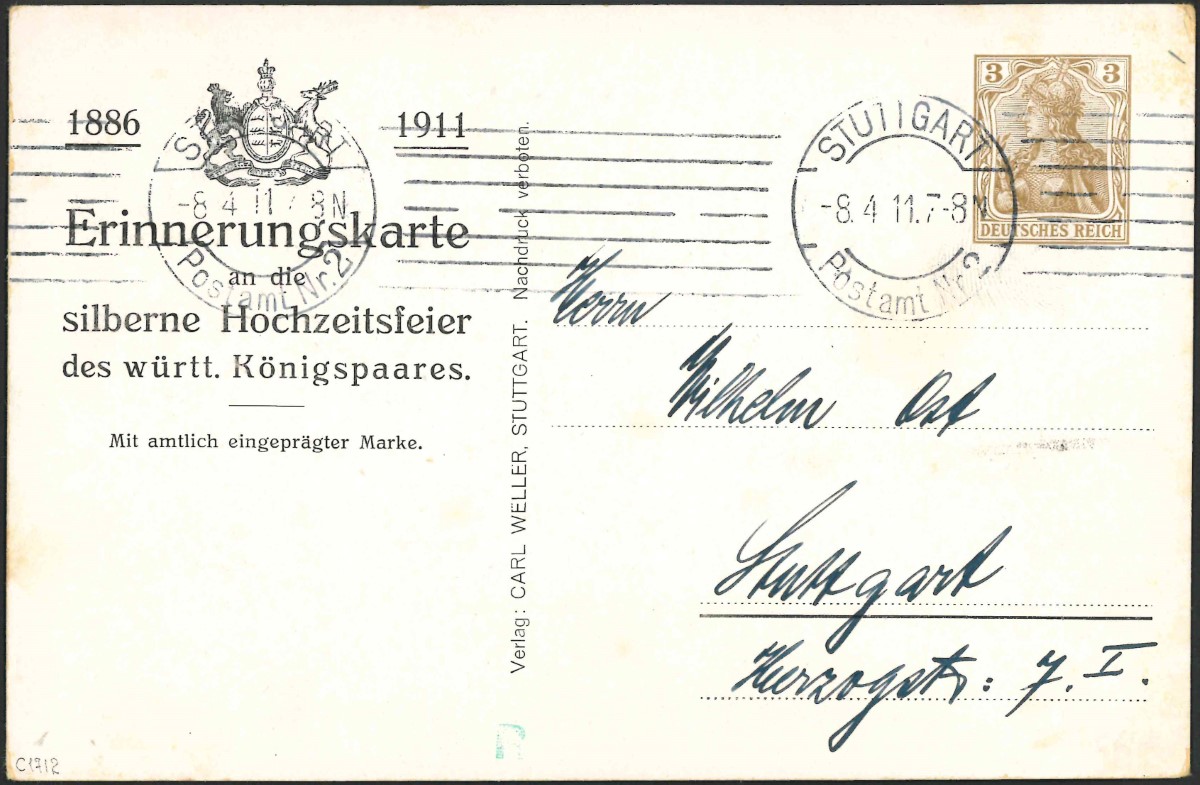 1886 1911
Erinnerungskarte
an die
silberne Hochzeitsfeier
des württ. Königspaares.
Mit amtlich eingeprägter Marke.
STUTTGART
-8 4 11 7 8N
Postamt Nr. 2.
Verlag: CARL WELLER, STUTTGART. Nachdruck verboten.
STUTTGART
-8.4 11.7-8N
Postamt Nr. 2.
3 3
DEUTSCHES REICH
Herrn
Wilhelm Ost
Stuttgart
Herzogstr: 7. I.
C1712